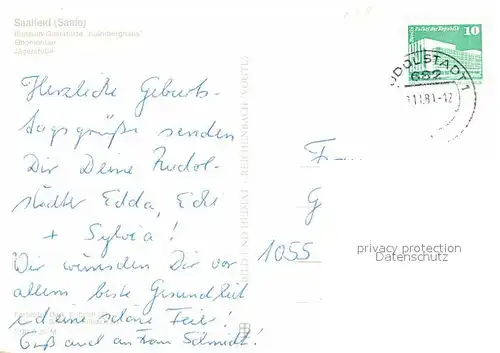 Saalfeld (Saale)
Bergmannklause
Jägerstube
Herzliche Geburts-
tagsgrüße senden
Dir Deine Rudol-
städter Edda, Ecki
+ Sylvia!
Wir wünschen Dir vor
allem beste Gesundheit
u. eine schöne Feier!
Gruß auch an Frau Schmidt!
BILD UND HEIMAT REICHENBACH
10
RUDOLSTADT 1
682
81-12
F
G
1055
privacy protection
Datenschutz